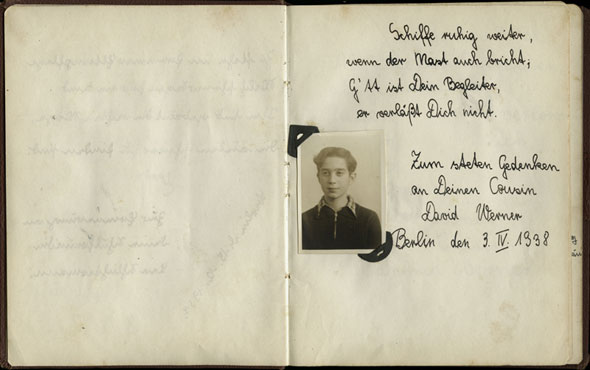 Schiffe ruhig weiter,
wenn der Mast auch bricht;
G'tt ist Dein Begleiter,
er verläßt Dich nicht.
Zum steten Gedenken
an Deinen Cousin
David Werner
Berlin den 3. IV. 1938